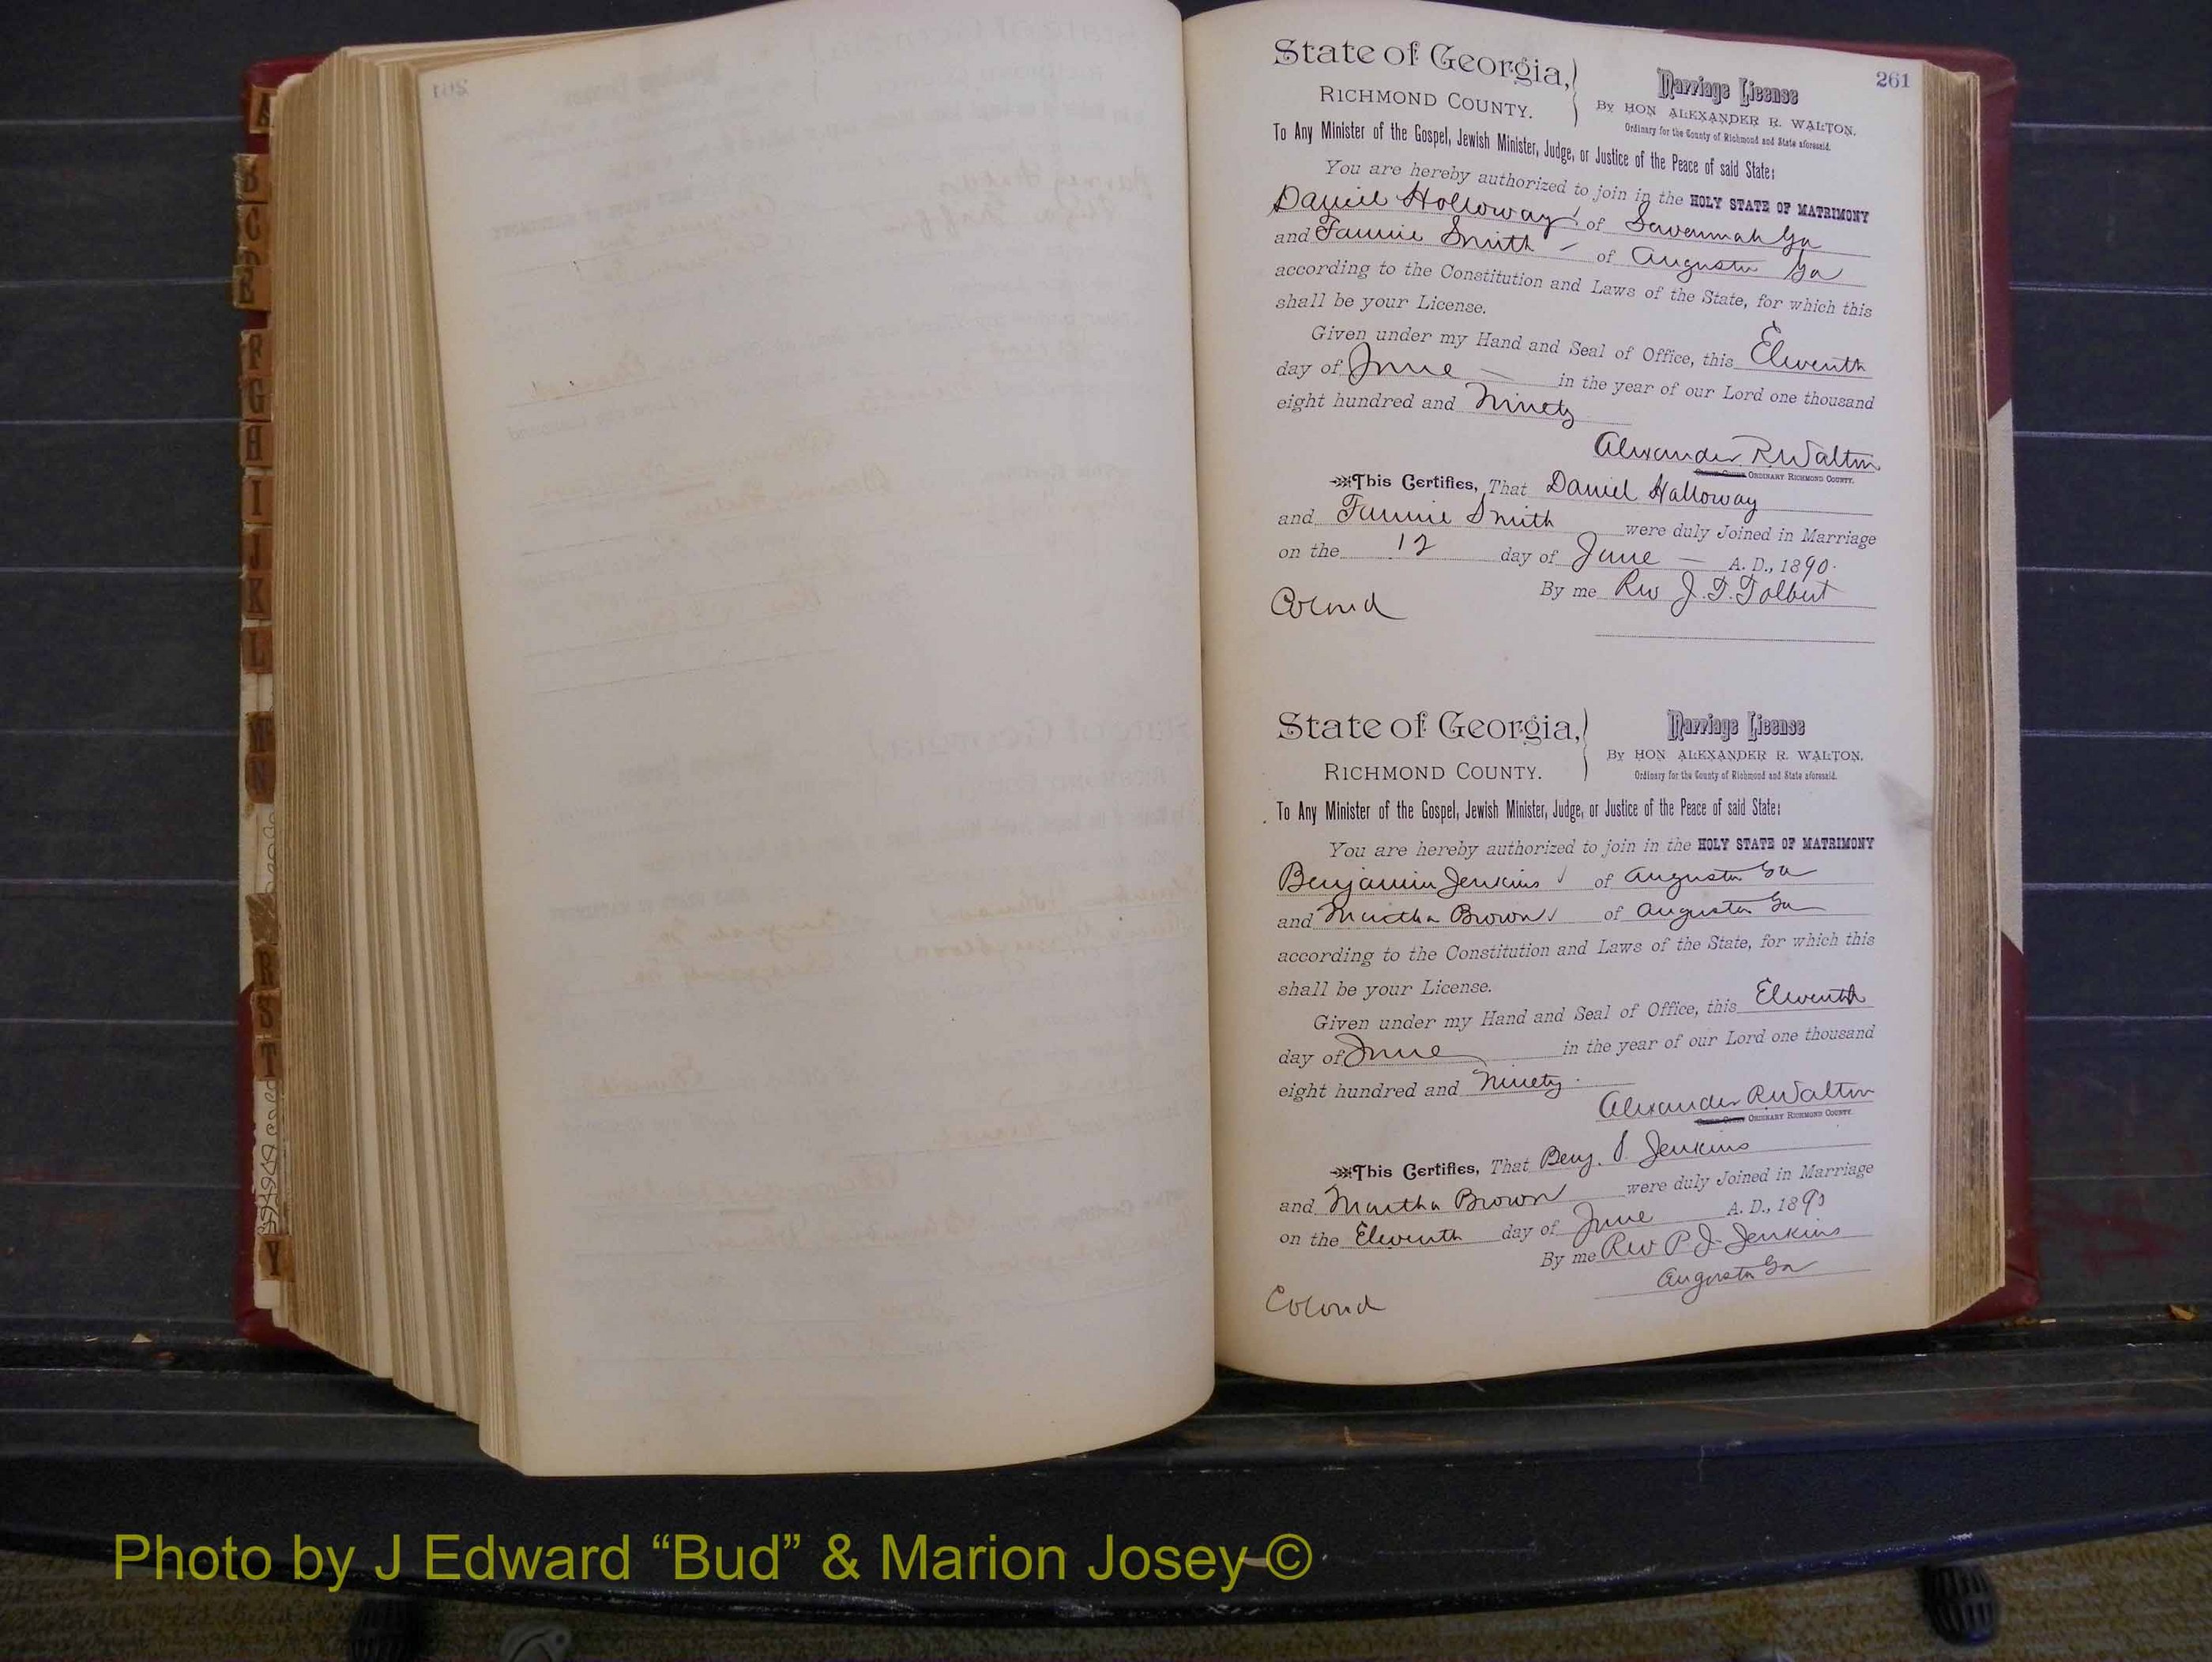 261
State of Georgia,
RICHMOND COUNTY.
Marriage License
By HON ALEXANDER R. WALTON,
Ordinary for the County of Richmond and State aforesaid.
To Any Minister of the Gospel, Jewish Minister, Judge, or Justice of the Peace of said State:
You are hereby authorized to join in the HOLY STATE OF MATRIMONY
Daniel Holloway of Savannah Ga
and Fannie Smith of Augusta Ga
according to the Constitution and Laws of the State, for which this
shall be your License.
Given under my Hand and Seal of Office, this Eleventh
day of June in the year of our Lord one thousand
eight hundred and Ninety
Alexander R Walton
ORDINARY RICHMOND COUNTY.
This Certifies, That Daniel Halloway
and Fannie Smith were duly Joined in Marriage
on the 12 day of June A. D., 1890.
By me Rev J. T. Tolbert
Colored
State of Georgia,
RICHMOND COUNTY.
Marriage License
By HON ALEXANDER R. WALTON,
Ordinary for the County of Richmond and State aforesaid.
To Any Minister of the Gospel, Jewish Minister, Judge, or Justice of the Peace of said State:
You are hereby authorized to join in the HOLY STATE OF MATRIMONY
Benjamin Jenkins of Augusta Ga
and Martha Brown of Augusta Ga
according to the Constitution and Laws of the State, for which this
shall be your License.
Given under my Hand and Seal of Office, this Eleventh
day of June in the year of our Lord one thousand
eight hundred and Ninety.
Alexander R Walton
ORDINARY RICHMOND COUNTY.
This Certifies, That Benj. Jenkins
and Martha Brown were duly Joined in Marriage
on the Eleventh day of June A. D., 1890
By me Rev P. J. Jenkins
Augusta Ga
Colored
B
C
F
G
H
I
J
K
L
M
N
R
S
T
Y
Photo by J Edward “Bud” & Marion Josey ©